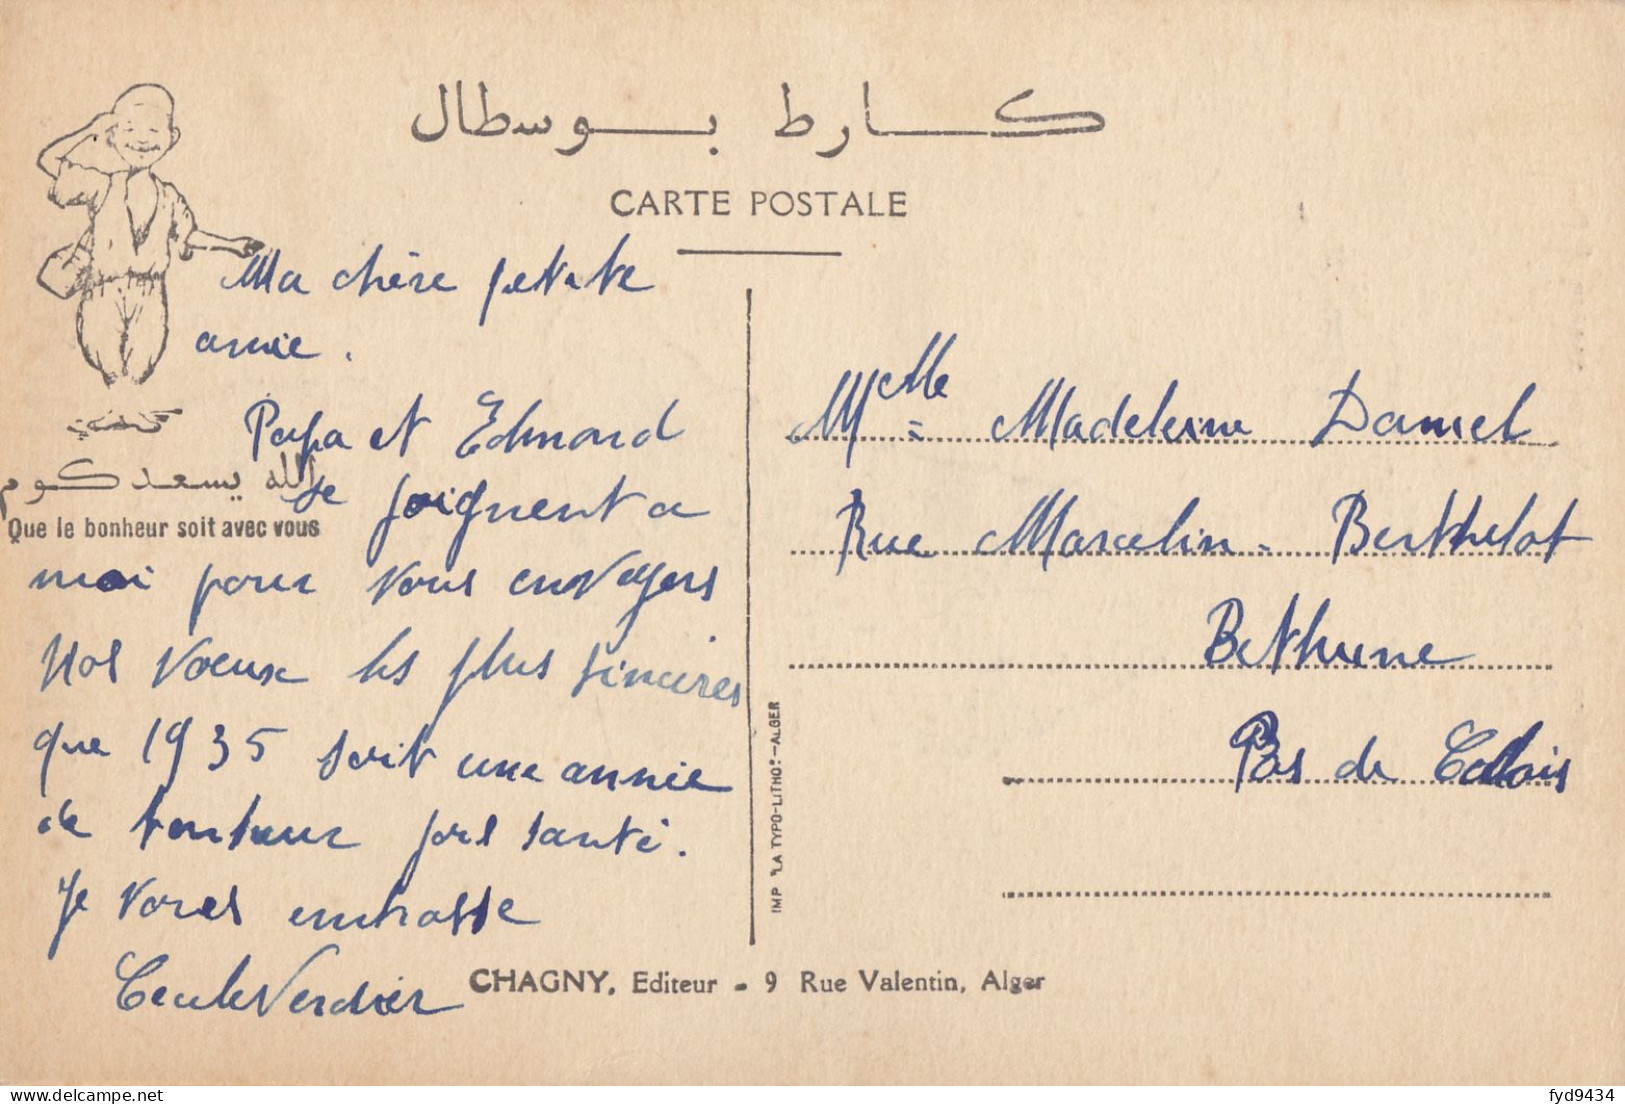 كارط بوسطال
CARTE POSTALE
Ma chère petite
amie.
Papa et Edmond
se joignent a
الله يسعدكوم
Que le bonheur soit avec vous
moi pour vous envoyers
nos voeux les plus sincères
que 1935 soit une année
de bonheur pors santé.
Je vous embrasse
Cecile Verdier
Melle Madeleine Damel
Rue Marcelin Berthelot
Bethune
Pas de Calais
IMP "LA TYPO-LITHO" - ALGER
CHAGNY, Editeur - 9 Rue Valentin, Alger
fyd9434